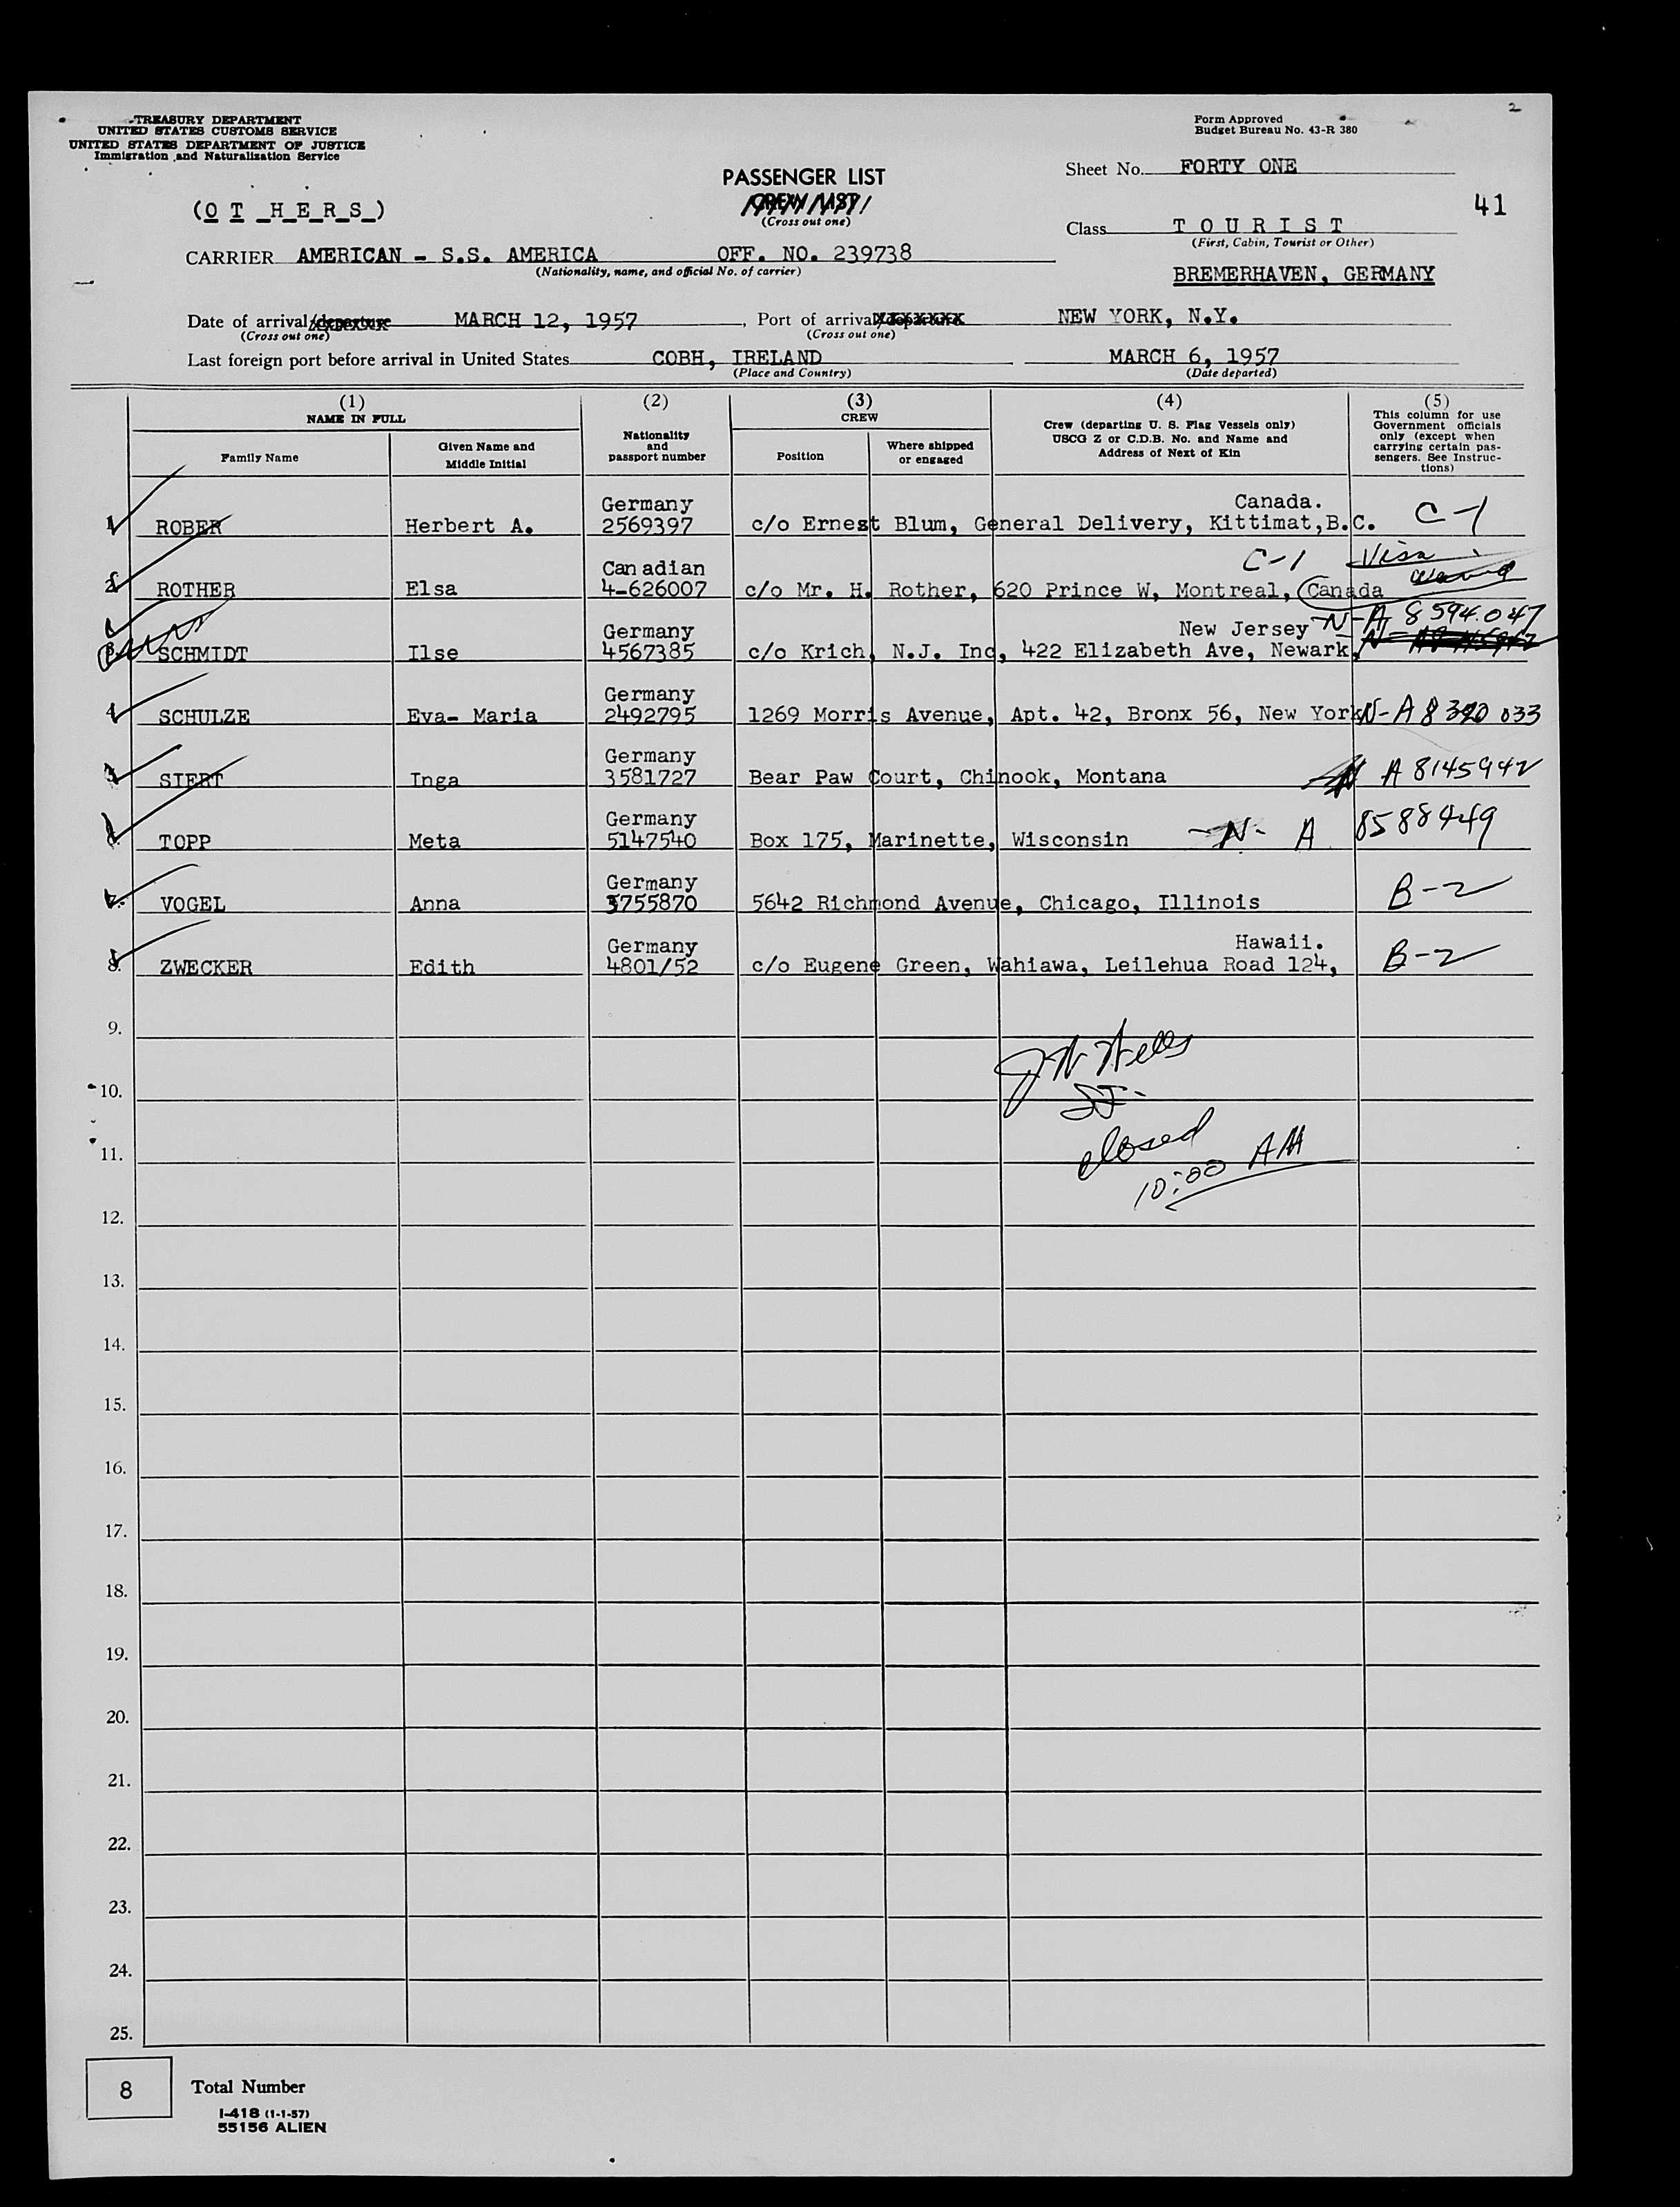 2
TREASURY DEPARTMENT
UNITED STATES CUSTOMS SERVICE
UNITED STATES DEPARTMENT OF JUSTICE
Immigration and Naturalization Service
Form Approved
Budget Bureau No. 43-R 380
PASSENGER LIST
CREW LIST
(Cross out one)
Sheet No. FORTY ONE
41
(O T H E R S)
Class T O U R I S T
(First, Cabin, Tourist or Other)
CARRIER AMERICAN - S.S. AMERICA OFF. NO. 239738
(Nationality, name, and official No. of carrier)
BREMERHAVEN, GERMANY
Date of arrival/departure MARCH 12, 1957, Port of arrival/departure NEW YORK, N.Y.
(Cross out one) (Cross out one)
Last foreign port before arrival in United States COBH, IRELAND MARCH 6, 1957
(Place and Country) (Date departed)
(1) (2) (3) (4) (5)
NAME IN FULL
Family Name
Given Name and
Middle Initial
Nationality
and
passport number
CREW
Position
Where shipped
or engaged
Crew (departing U. S. Flag Vessels only)
USCG Z or C.D.B. No. and Name and
Address of Next of Kin
This column for use
Government officials
only (except when
carrying certain pas-
sengers. See Instruc-
tions)
Germany Canada.
1 ROBER Herbert A. 2569397 c/o Ernest Blum, General Delivery, Kittimat,B.C. C-1
Canadian C-1 Visa
2 ROTHER Elsa 4-626007 c/o Mr. H. Rother, 620 Prince W, Montreal, Canada
Germany New Jersey N-A 8 594.047
3 SCHMIDT Ilse 4567385 c/o Krich, N.J. Inc, 422 Elizabeth Ave, Newark,
Germany
4 SCHULZE Eva- Maria 2492795 1269 Morris Avenue, Apt. 42, Bronx 56, New York N-A 8 320 033
Germany
5 SIERT Inga 3581727 Bear Paw Court, Chinook, Montana N A 8145942
Germany
6. TOPP Meta 5147540 Box 175, Marinette, Wisconsin N- A 8588449
Germany
7. VOGEL Anna 3755870 5642 Richmond Avenue, Chicago, Illinois B-2
Germany Hawaii.
8. ZWECKER Edith 4801/52 c/o Eugene Green, Wahiawa, Leilehua Road 124, B-2
9.
10.
closed
11.
10:00 AM
12.
13.
14.
15.
16.
17.
18.
19.
20.
21.
22.
23.
24.
25.
8 Total Number
I-418 (1-1-57)
55156 ALIEN